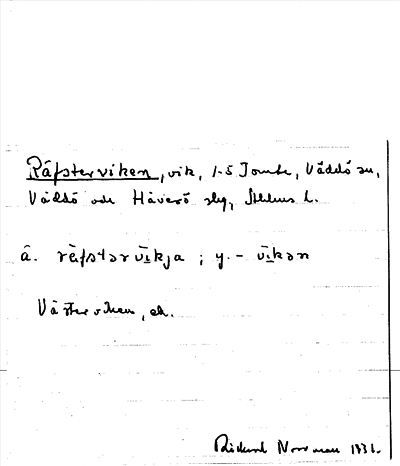 Räfsterviken, vik, 1-5 Tomta, Väddö sn,
Väddö och Häverö slg, Sthlms l.
ä. räfstərvīkja ; y. – vīkən
Västerviken, ek.
Rickard Norrman 1931.